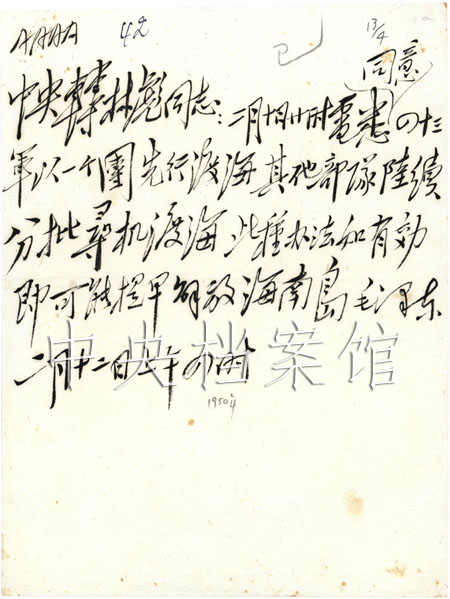 AAAA 42 13/4
同意
中央轉林彪同志：二月十日廿时電悉 四十三
軍以一个團先行渡海其他部隊陸續
分批尋机渡海 此種办法如有効
即可能提早解放海南島 毛泽东
二月十二日上午四时
1950年
中央档案馆